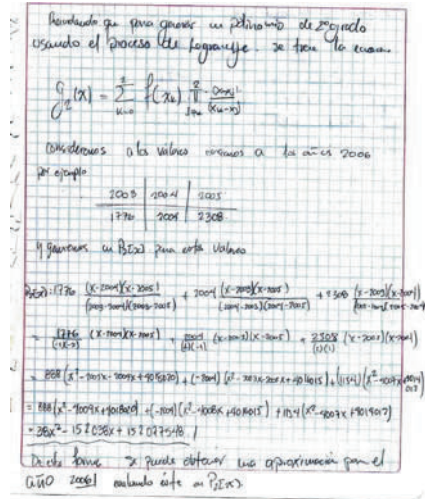 que para generar un polinomio de 2º grado
usando el proceso de Lagrange. se tiene la
g₂(x) = Σ f(xₖ) Π
consideremos a los valores cercanos a los años 2006
por ejemplo
2003 | 2004 | 2005
1776 | 2004 | 2308
y generemos un P₂(x) para estos valores
P₂(x): 1776 (x-2004)(x-2005) / (2003-2004)(2003-2005) + 2004 (x-2003)(x-2005) / (2004-2003)(2004-2005) + 2308 (x-2003)(x-2004)
= 1776 / (-1)(-2) (x-2004)(x-2005) + 2004 / (1)(-1) (x-2003)(x-2005) + 2308 / (2)(1) (x-2003)(x-2004)
= 888 (x² + 4018020) + (-2004) (x² + 4016015) + (1154) (x² - 4007x
= 888 (x² - 4009x + 4018020) + (-2004) (x² - 4008x + 4016015) + 1154 (x² - 4007x + 4014012)
= 38x² - 152038x + 152077548
De esta forma se puede obtener una aproximación para el
año 2006 evaluando éste en P₂(x).